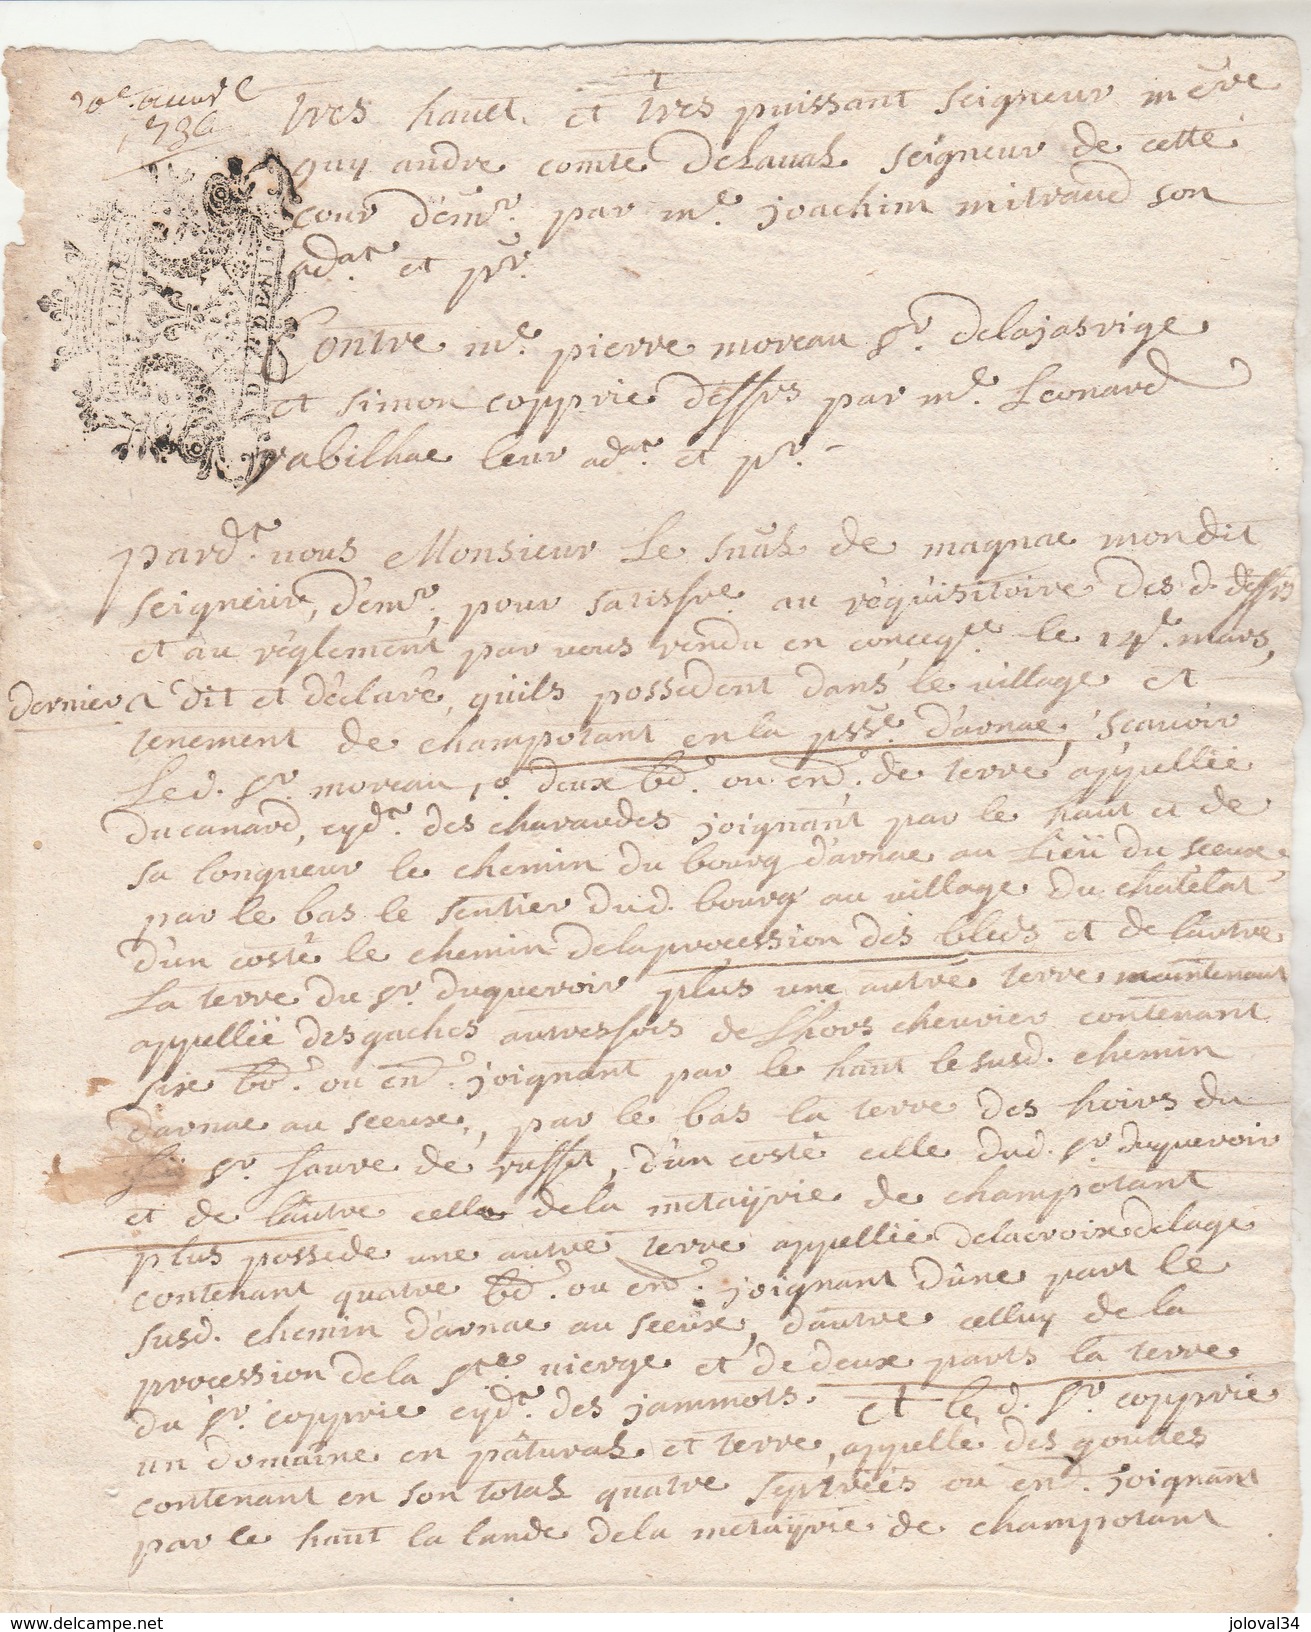 20e. auril
1736
tres haut. et tres puissant seigneur mere
guy andre comte Delaual seigneur de cette
cour Dem.r par m.e joachim mitraud son
adat et pr.
Contre m.e pierre moreau Sr. Delajasrige
et simon copprie Deffrs par m.e Leonard
rabilhac leur adat. et pr. -
pard.t vous Monsieur Le snal de magnac mondit
seigneur, dem.r, pour satisfre. au requisitoire des d. deffrs
et au reglement par vous rendu en conceq.ce le 14e. mars,
dernier a dit et declaré, quils possedent dans le village et
tenement de champotant en la psse. Darnac, scauoir
Led. Sr. moreau, 1o. deux bd. ou en. de terre appellée
Ducanard, cyd.t des charaudes joignant par le haut et de
sa longueur le chemin du bourg darnac au lieu du seeux
par le bas le sentier dud. bourg au village du chatelat
d'un costé le chemin delaprocession des bleds et de lautre
La terre du Sr. duqueroir plus une autre terre maintenant
appellée desgaches autresfois de Lhors cheurier contenant
six bd. ou en. joignant par le haut lesusd. chemin
darnac au seeux, par le bas la terre des hoirs du
feu Sr. faure de ruffet, d'un costé celle dud. Sr. duqueroir
et de lautre celle dela metayrie de champotant
plus possede une autre terre appellée delacroixdelage
contenant quatre bd. ou en. joignant d'une part le
susd. chemin darnac au seeux, dautre celluy de la
procession dela Ste. vierge et de deux parts la terre
du Sr. copprie cyd.t des jammots. Et le d. Sr. copprie
un domaine en pâtural et terre, appellé des gouttes
contenant en son total quatre septrées ou en. joignant
par le haut la lande dela metayrie de champotant
www.delcampe.net
joloval34